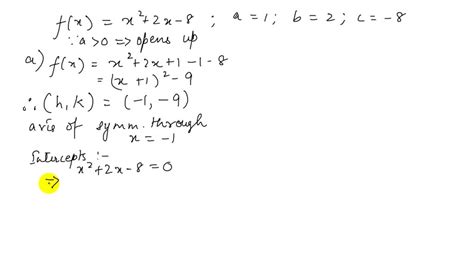 f(x) = x²+2x-8 ; a = 1 ; b = 2 ; c = -8
∵ a>0 => opens up
a) f(x) = x²+2x+1-1-8
= (x+1)²-9
∴ (h,k) = (-1,-9)
axis of symm. through
x = -1
Intercepts :-
x²+2x-8 = 0
⇒